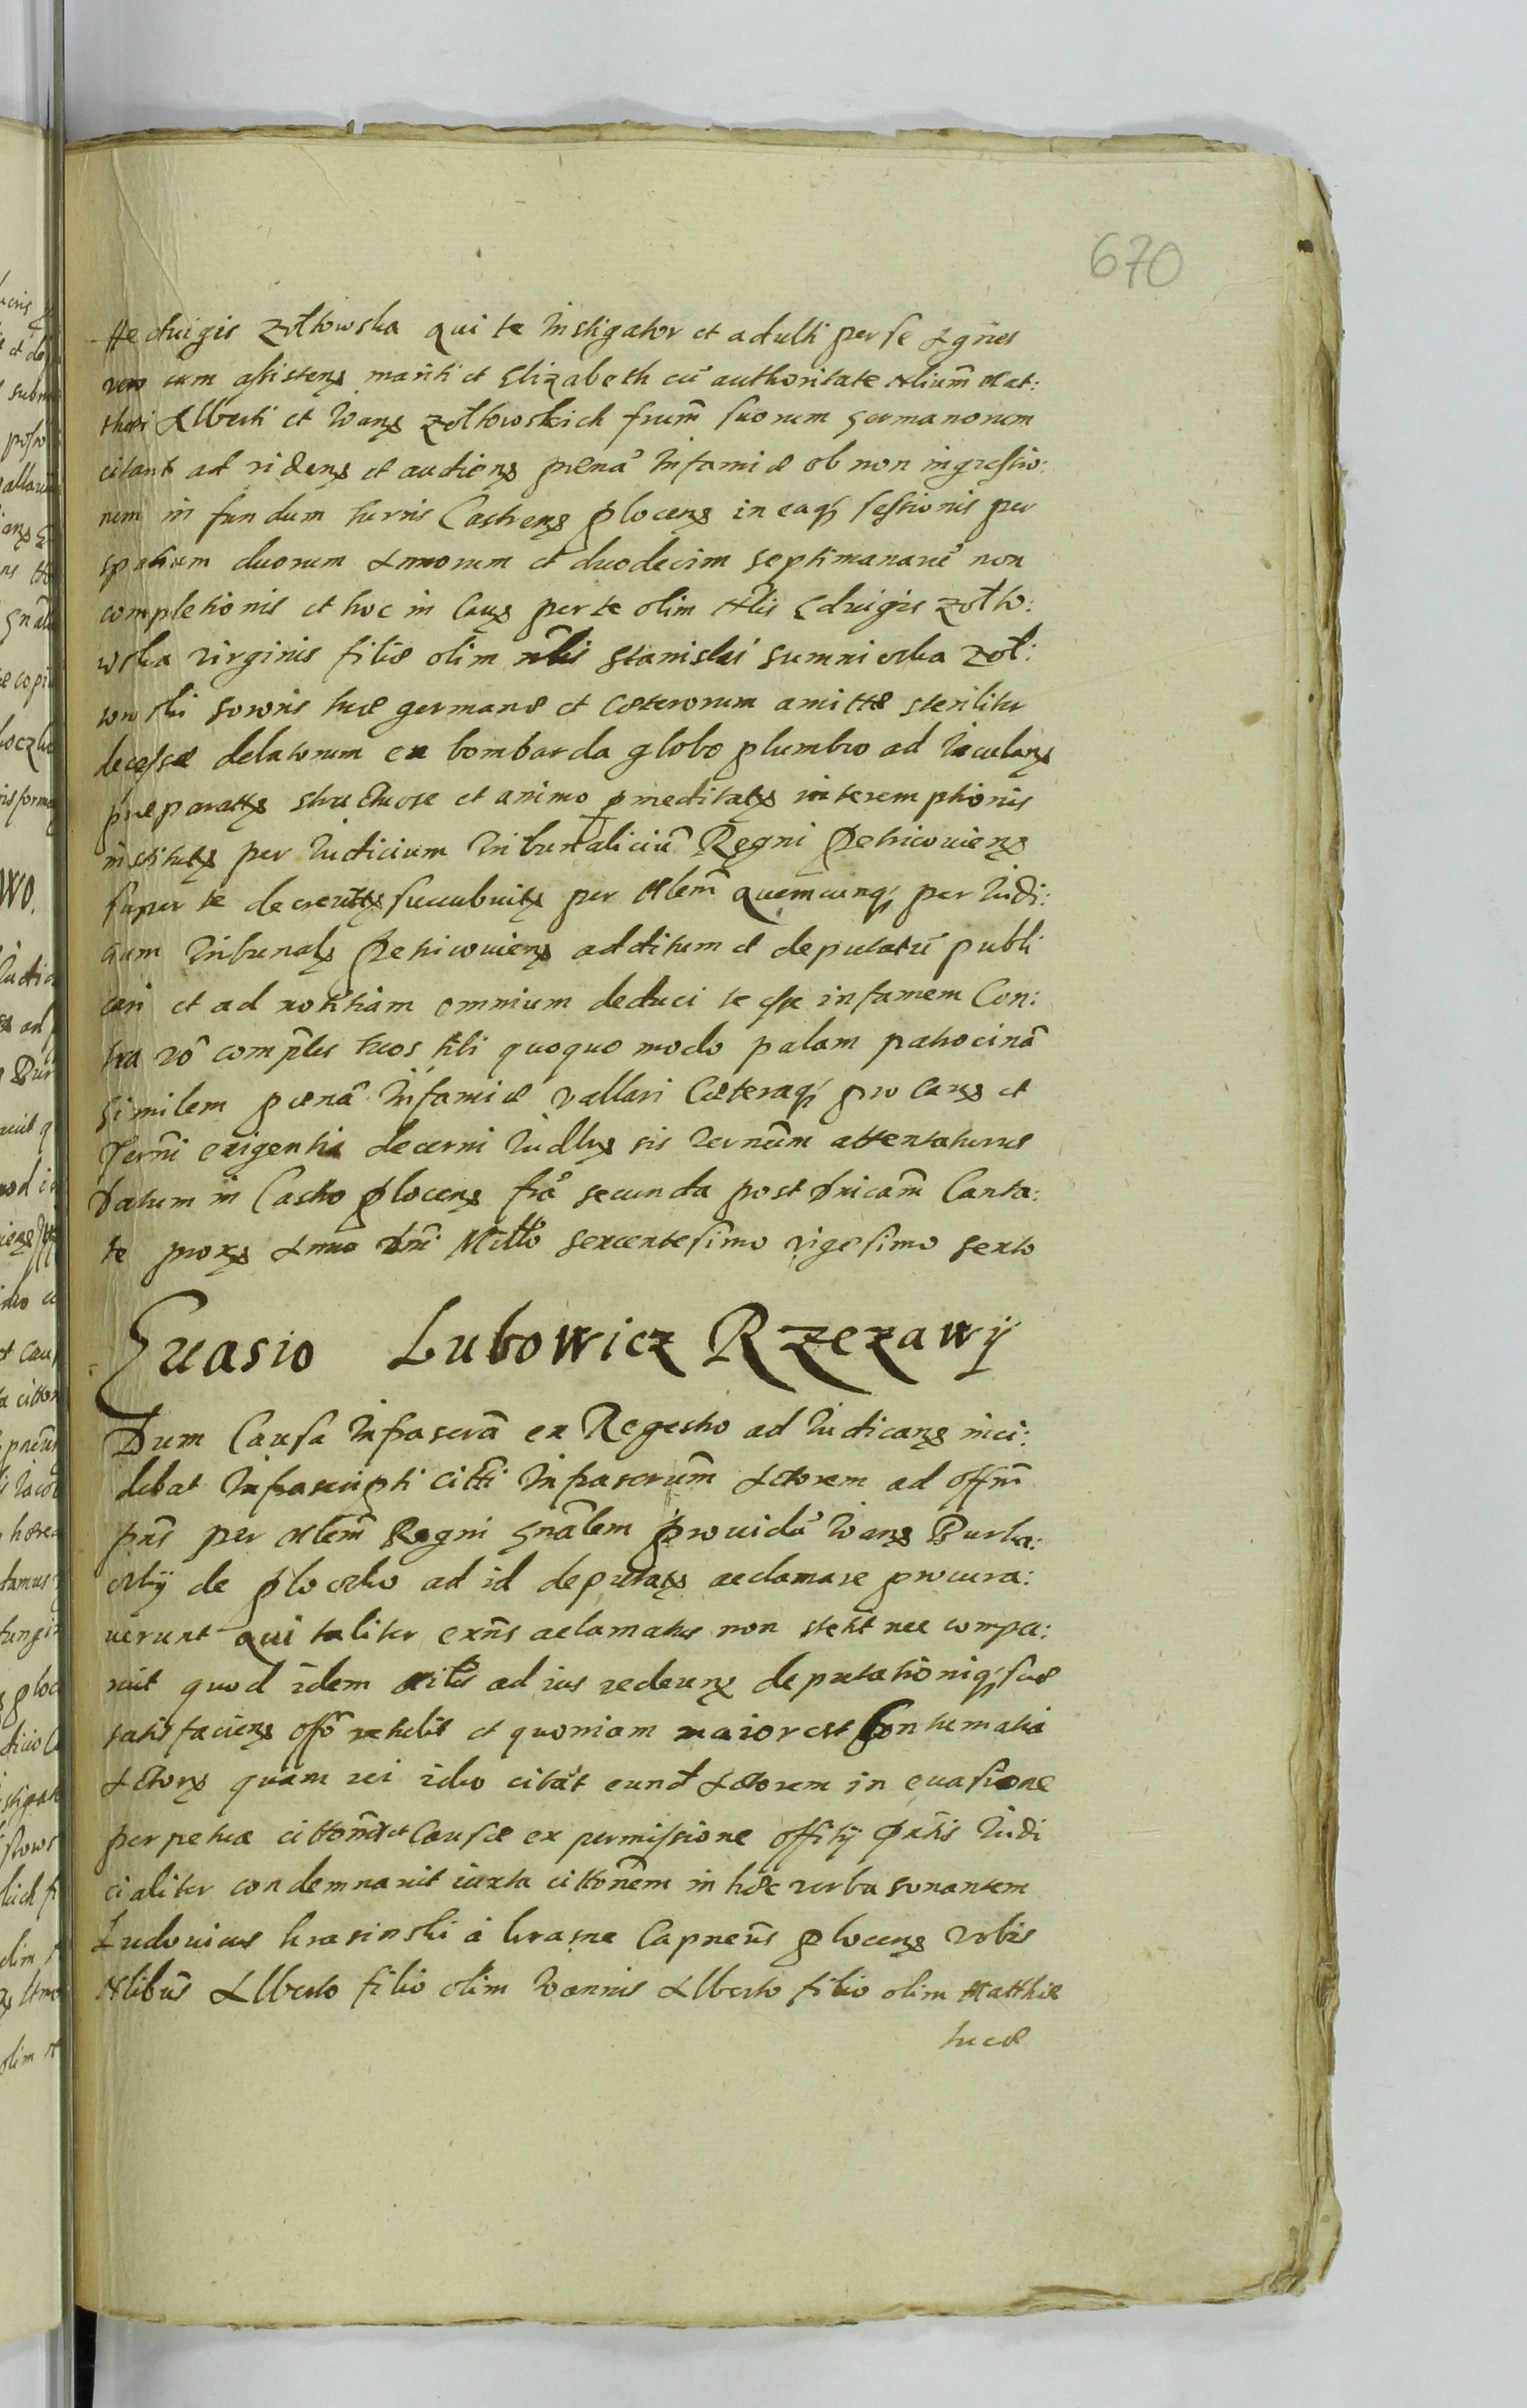 670
Heduigis Zołtowska qui te Instigator et adulti per se Agnes
vero cum assistens mariti et Elizabeth cū authoritate Nlium Mat:
thaei Alberti et Ioans Zołtowskich frum̃ suorum germanorum
citant ad videns et audiens pœnā Infamiæ ob non ingressio:
nem in fundum turris Castrens plocens in eaq sessionis per
spatium duorum Annorum et duodecim septimanarū non
completionis et hoc in Caus per te olim Nlis Eduigis Zołto:
wska virginis filiæ olim nlis Stanislai Zoł:
towski sororis tuæ germanæ et cæterorum amittæ steriliter
decessæ delatorum ex bombarda globo plumbeo ad Iaculans
præparats structuose et animo præmeditats interemptionis
instituts per Iudicium Tribunaliciū Regni Petricouiens
super te decrets succubuits per Mlem̃ quemcunq per Iudi:
cium Tribunals Petricouiens additum et deputatū publi
cari et ad notitiam omnium deduci te esse infamem Con:
tra vō comples tuos tibi quoquo modo palam patrocinā
similem pœnā Infamiæ vallari Cæteraq pro Caus et
Termi exigentia decerni Iudlr sis Termum attentaturus
Datum in Castro plocens fiā secunda post Dnicam̃ Canta:
te proxs Anno Dni Millo sexcentesimo vigesimo sexto
Euasio Lubowicz Rzezawÿ
Dum Causa Infrascrā ex Regestro ad Iudicans inci:
debat Infrascripti Citti Infrascrum̃ Actorem ad offm̃
prns per Mlem̃ Regni Gnãlem prouidū Ioans Burka:
ckÿ de plocko ad id deputats acclamare procura:
uerunt qui taliter exñs aclamatus non stetit nec compa:
ruit quod idem Mlis ad ius rediens deputationiq suæ
satisfaciens offõ retulit et quoniam maior est Contumatia
Actors quam rei ideo citãt eund Actorem in euasione
perpetuæ cittonis et Causæ ex permissione offitÿ prntis Iudi
cialiter condemnarit iuxta cittonem in hæc verba sonantem
Ludouicus krasinski à krasne Capneus plocens vobis
Nlibus Alberto filio olim Ioannis Alberto filio olim Matthiæ
lucæ